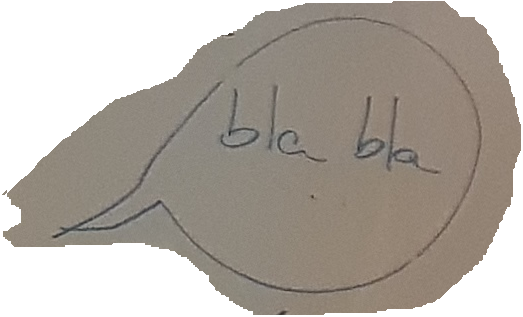 bla bla